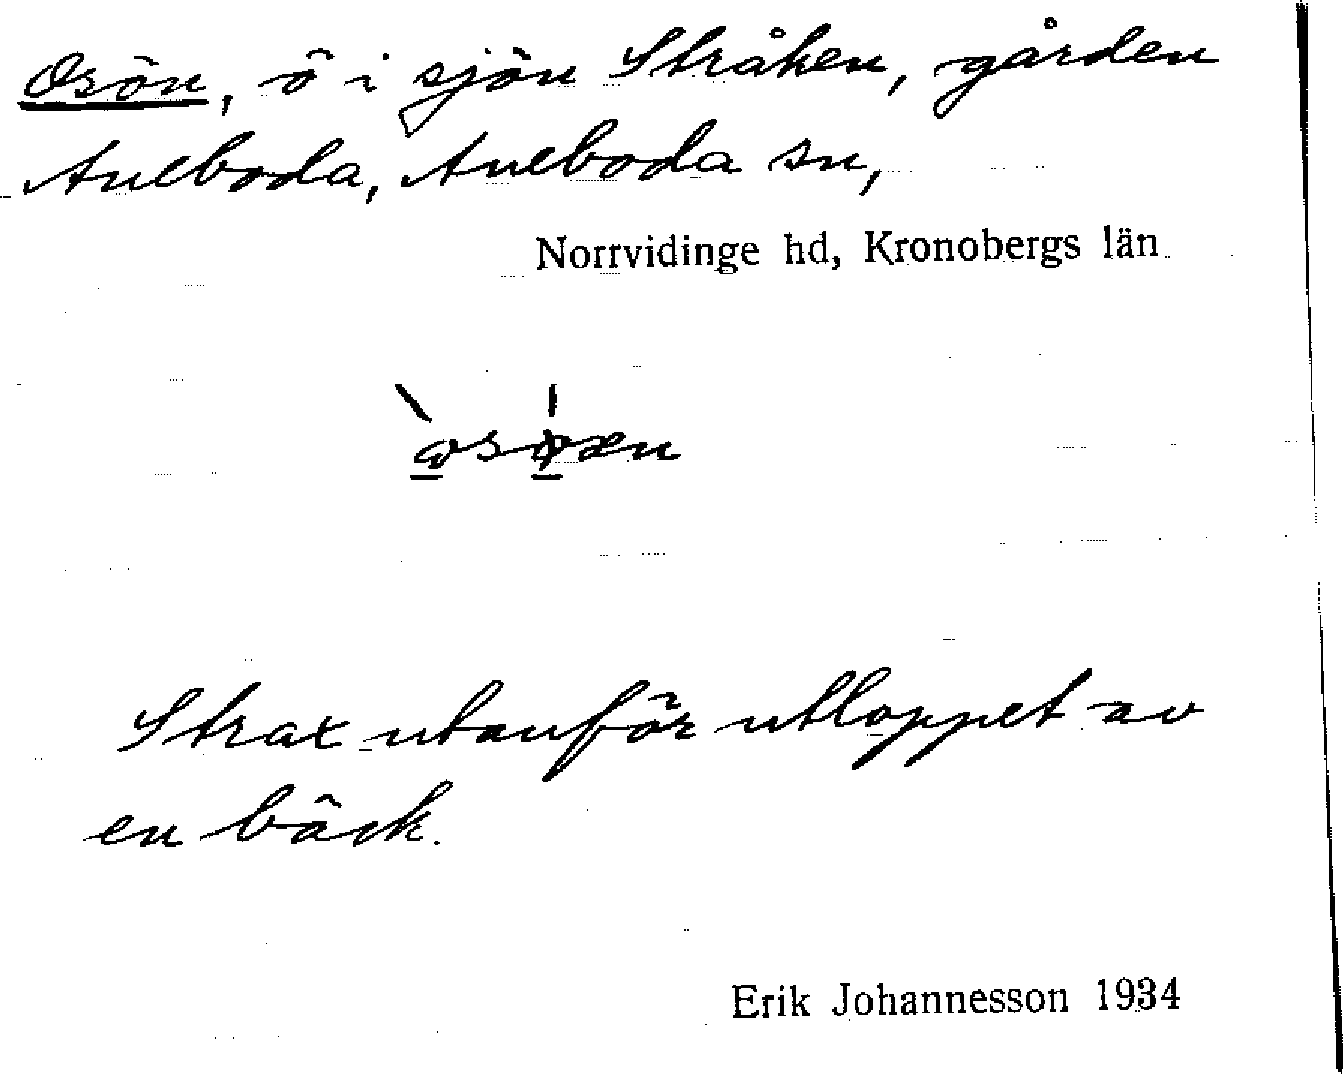 Osön, ö i sjön Stråken, gården
Aneboda, Aneboda sn,
Norrvidinge hd, Kronobergs län
Strax utanför utloppet av
en bäck.
Erik Johannesson 1934